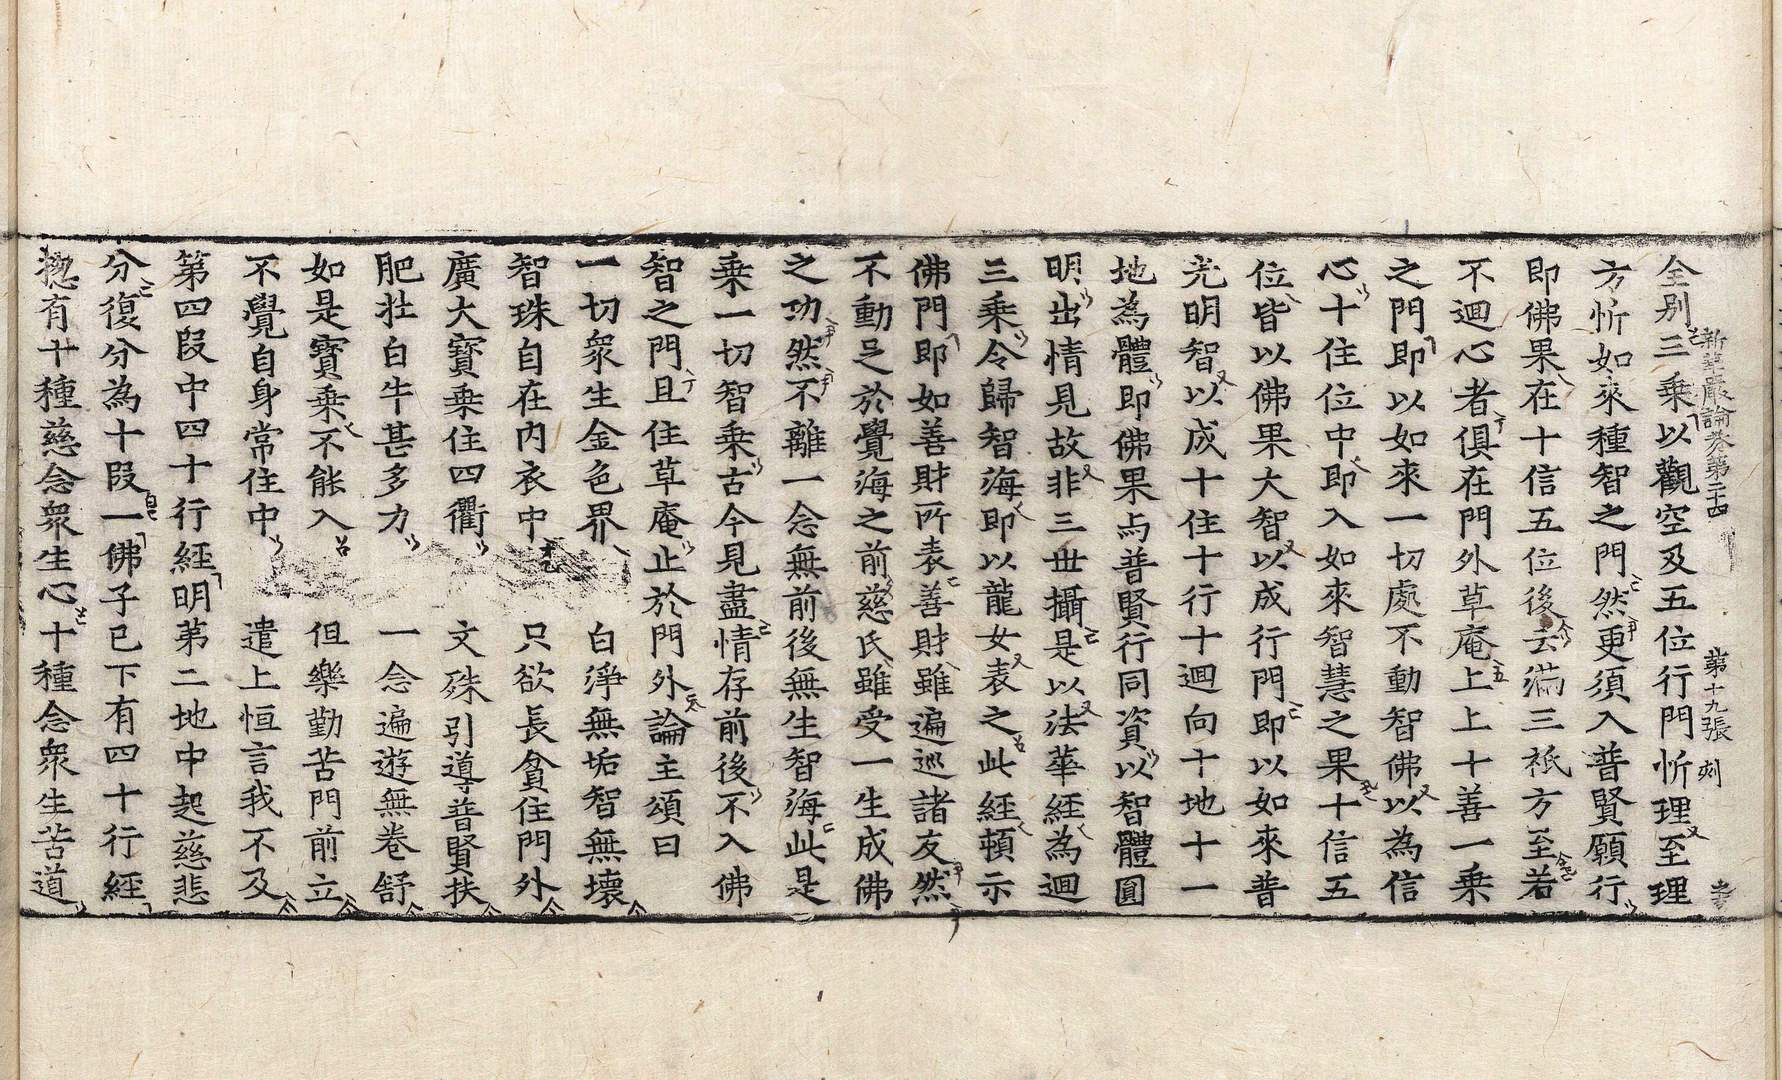 新華嚴論卷第二十四　第十九張　刻
全別三乘以觀空及五位行門忻理至理
方忻如來種智之門然更須入普賢願行
即佛果在十信五位後去滿三祇方至若
不迴心者俱在門外草庵上上十善一乘
之門即以如來一切處不動智佛以為信
心十住位中即入如來智慧之果十信五
位皆以佛果大智以成行門即以如來普
光明智以成十住十行十迴向十地十一
地為體即佛果与普賢行同資以智體圓
明出情見故非三世攝是以法華經為迴
三乘令歸智海即以龍女表之此經頓示
佛門即如善財所表善財雖遍巡諸友然
不動足於覺海之前慈氏雖受一生成佛
之功然不離一念無前後無生智海此是
乘一切智乘古今見盡情存前後不入佛
智之門且住草庵止於門外論主頌曰
一切衆生金色界　白淨無垢智無壞
智珠自在內衣中　只欲長貧住門外
廣大寶乘住四衢　文殊引導普賢扶
肥壯白牛甚多力　一念遍遊無卷舒
如是寶乘不能入　但樂勤苦門前立
不覺自身常住中　遣上恒言我不及
第四段中四十行經明第二地中起慈悲
分復分為十段一佛子已下有四十行經
揔有十種慈念衆生心十種念衆生苦道